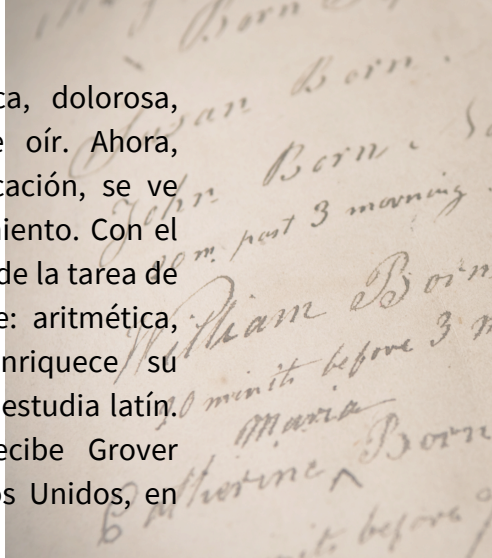 ca, dolorosa,
e oír. Ahora,
cación, se ve
iento. Con el
de la tarea de
e: aritmética,
nriquece su
estudia latín.
ecibe Grover
os Unidos, en
Born
Susan Born.
John Born.
m. past 3 morning
William Born
10 minits before 3
Maria
Catherine Born
^
minits before